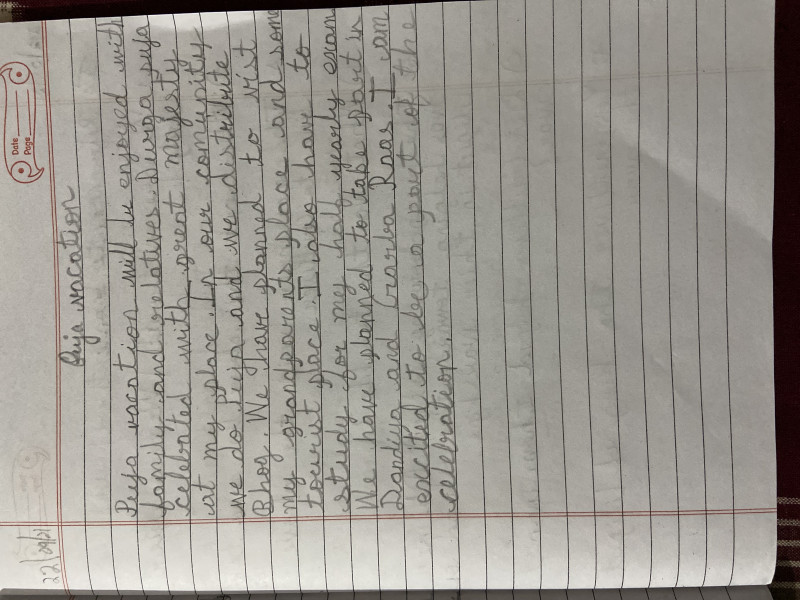 22/09/21
Date
Page
Puja vacation
Puja vacation will be enjoyed with
family and relatives. Durga puja
celebrated with great majesty
at my place. In our comunity
we do Puja and we distribute
Bhog. We have planned to visit
my grandparents place and some
tourist place. I also have to
study for my half yearly exam
We have planned to take part in
Dandiya and Garba Raas. I am
excited to be a part of the
celebration.